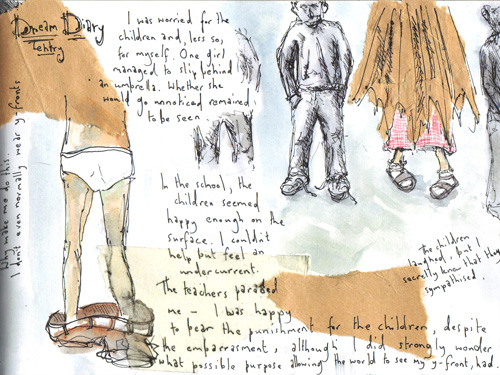 Dream Diary
1entry
I was worried for the
children and, less so,
for myself. One girl
managed to slip behind
an umbrella. Whether she
would go unnoticed remained
to be seen.
Why make me do this.
I don't even normally wear y-fronts
In the school, the
children seemed
happy enough on the
surface. I couldn't
help but feel an
undercurrent.
The teachers paraded
me – I was happy
to bear the punishment for the children, despite
the embarrasment, although I did strongly wonder
what possible purpose allowing the world to see my y-front, had
The children
laughed, but I
secretly knew that they
sympathised.